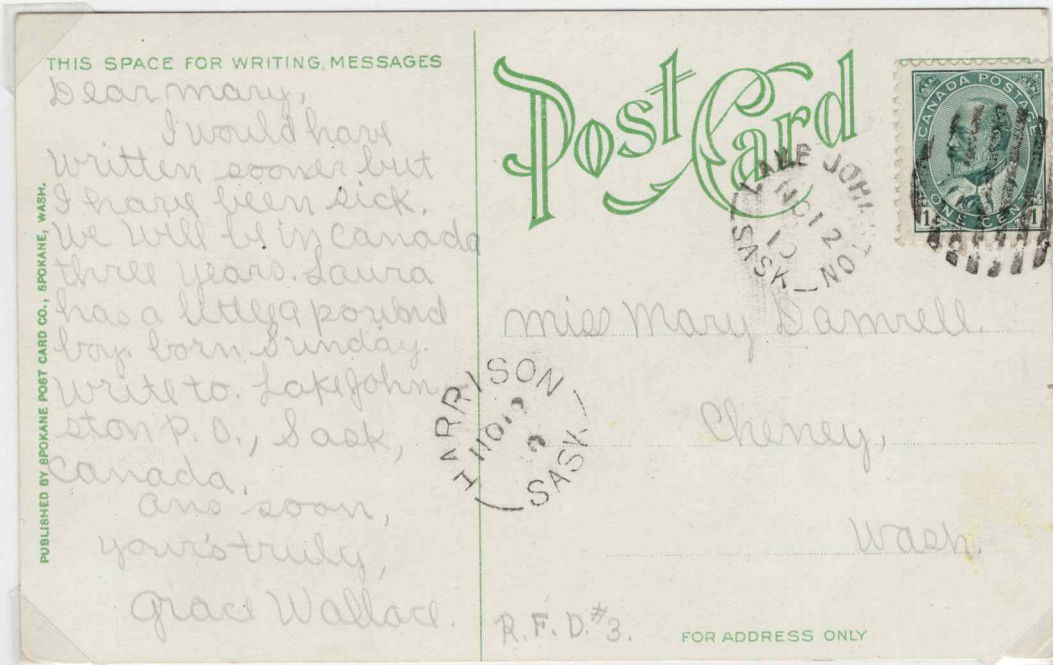 THIS SPACE FOR WRITING MESSAGES
Dear Mary,
I would have
written sooner but
I have been sick.
We will be in Canada
three years. Laura
has a little 9 pound
boy born Sunday.
Write to. Lake John
ston P.O., Sask,
Canada,
Ans soon,
your's truly,
Grace Wallace.
PUBLISHED BY SPOKANE POST CARD CO., SPOKANE, WASH.
Post Card
CANADA POSTAGE
1 ONE CENT 1
LAKE JOHN
NO 12
10
SASK
HARRISON
SASK
Miss Mary Damrell.
Cheney,
Wash.
R.F.D. #3.
FOR ADDRESS ONLY